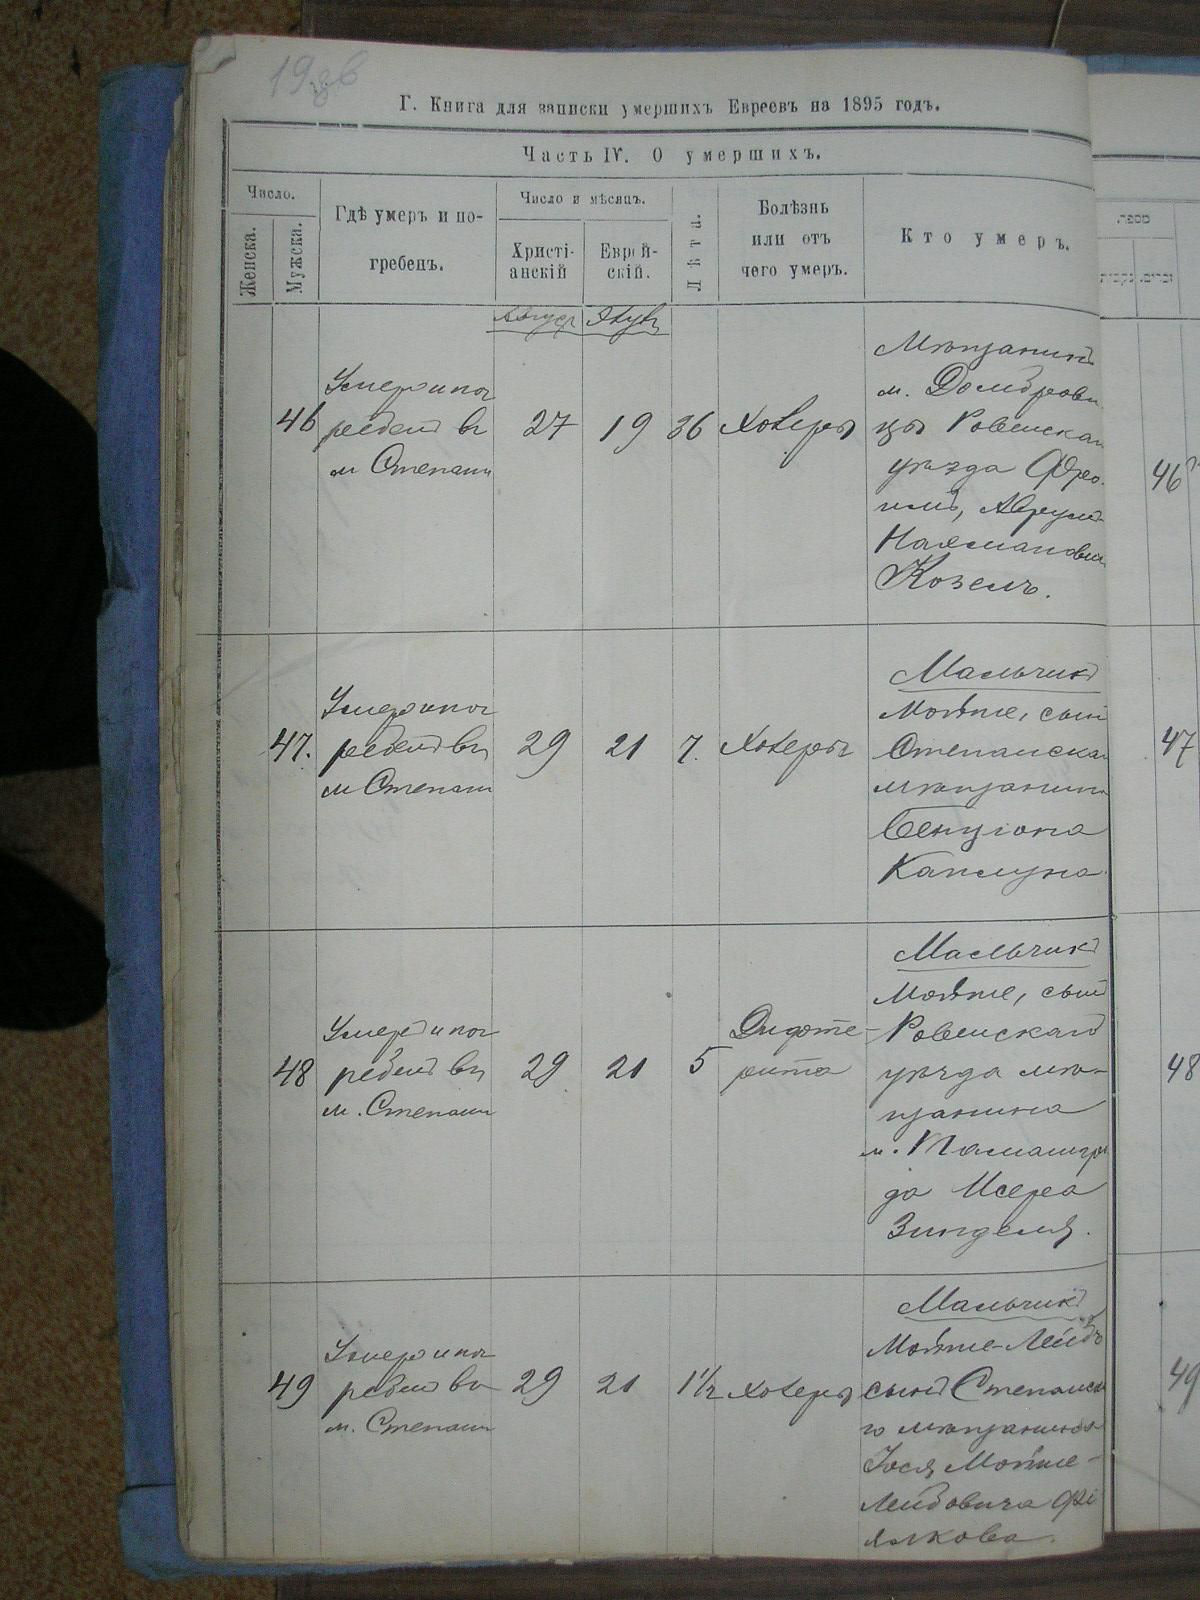 Г. Книга для записки умершихъ Евреевъ на 1895 годъ.
Часть IV. О умершихъ.
Число.
Женска.
Мужска.
Гдѣ умеръ и по-
гребенъ.
Число и мѣсяцъ.
Христі-
анскій
Еврей-
скій.
Лѣта.
Болѣзнь
или отъ
чего умеръ.
Кто умеръ.
מספר.
זכרים.
נקבות
Август
46
Умеръ и пог
ребенъ въ
м Степани
27
19
36
Холеры
Мѣщанинъ
м. Домброви
цы Ровенскаг
уѣзда Фро
имъ, Аврумъ
Нахмановичъ
Козелъ.
46
47.
Умеръ и пог
ребенъ въ
м Степани
29
21
7.
Холеры
Мальчикъ
Мойше, сынъ
Степанскаг
мѣщанина
Бенціона
Каплуна
47
48
Умеръ и пог
ребенъ въ
м. Степани
29
21
5
Дифте-
рита
Мальчикъ
Мойше, сынъ
Ровенскаго
уѣзда мѣ-
щанина
м. Томашгро
да Исера
Зинделя.
48
49
Умеръ и пог
ребенъ въ
м. Степани
29
21
1½
Холеры
Мальчикъ
Мойше-Лейбъ
сынъ Степанска
го мѣщанина
Іося Мойше-
Лейбовича Фі
ялкова.
49